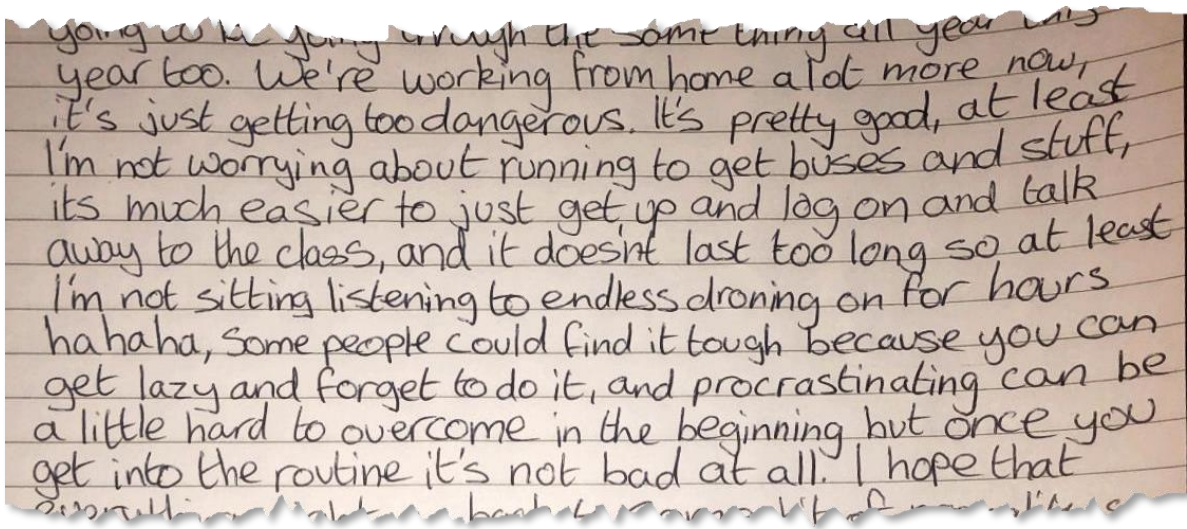 going through the same thing all year this
year too. We're working from home a lot more now,
it's just getting too dangerous. It's pretty good, at least
I'm not worrying about running to get buses and stuff,
its much easier to just get up and log on and talk
away to the class, and it doesn't last too long so at least
I'm not sitting listening to endless droning on for hours
hahaha, Some people could find it tough because you can
get lazy and forget to do it, and procrastinating can be
a little hard to overcome in the beginning but once you
get into the routine it's not bad at all. I hope that